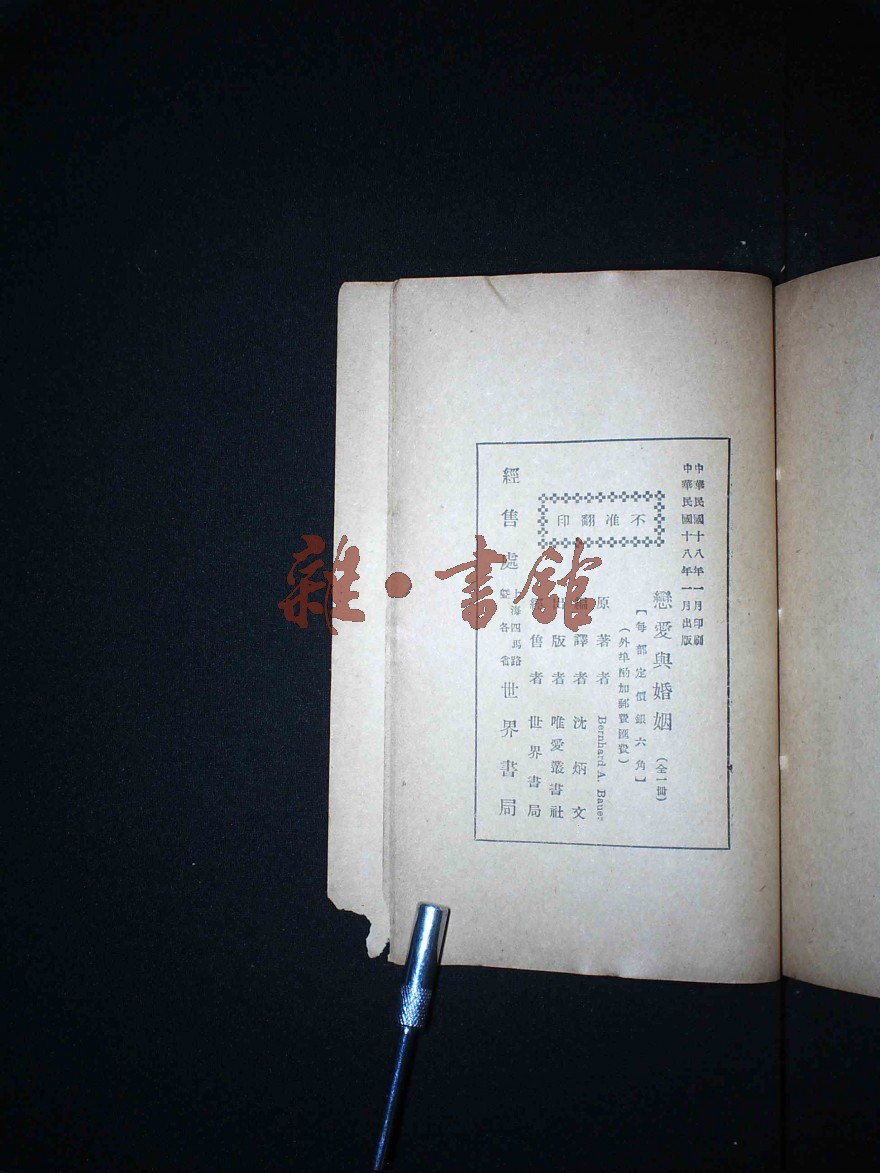 中華民國十八年一月印刷
中華民國十八年一月出版
戀愛與婚姻(全一冊)
【每部定價銀六角】
(外埠酌加郵費匯費)
不准翻印
原著者 Bernhard A. Bauer
編譯者 沈炳文
出版者 唯愛叢書社
經售者 世界書局
經售處 上海四馬路暨各省 世界書局
雜·書館